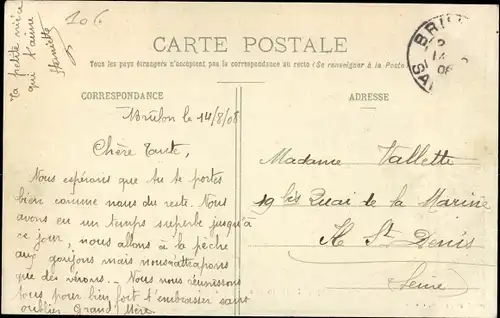 106
Ta petite nièce
qui t'aime
CARTE POSTALE
Tous les pays étrangers n'acceptent pas la correspondance au recto (Se renseigner à la Poste)
CORRESPONDANCE
Brûlon le 14/8/08
Chère Tante,
Nous espérons que tu te portes
bien comme nous du reste. Nous
avons eu un temps superbe jusqu'à
ce jour, nous allons à la pêche
aux goujons mais nous n'attrapons
que des vérons. Nous nous réunissons
tous pour bien fort t'embrasser sans
oublier Grand'Mère.
ADRESSE
Madame Vallette
19 bis Quai de la Marine
St Denis
Seine